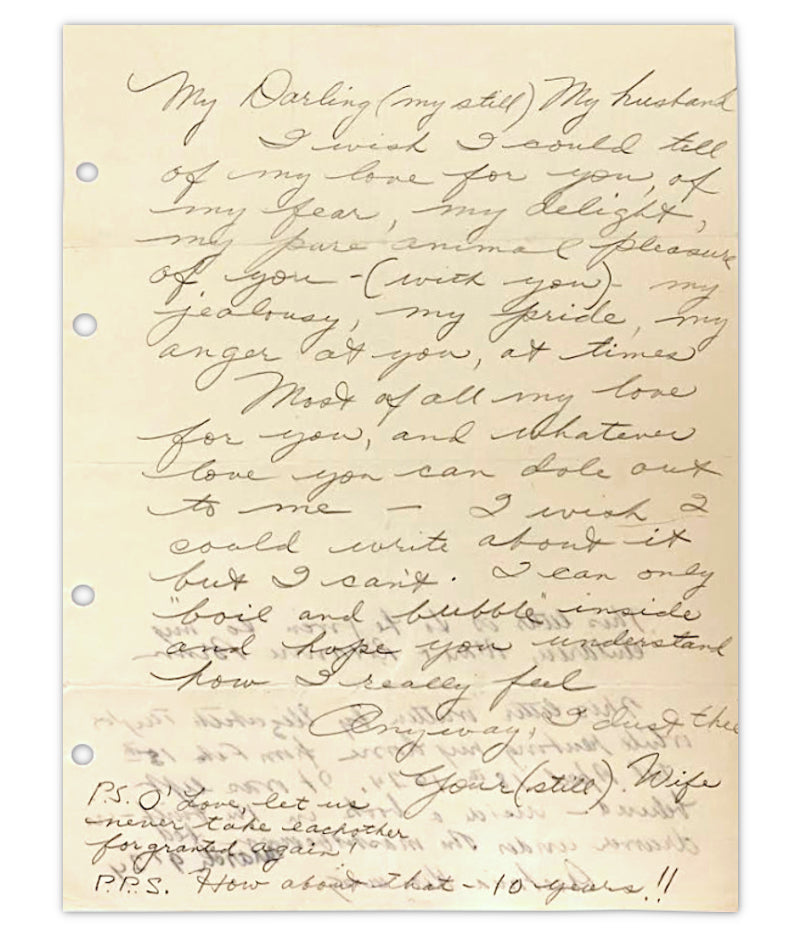 My Darling (my still) My husband
I wish I could tell
of my love for you, of
my fear, my delight,
my pure animal pleasure
of you - (with you) - my
jealousy, my pride, my
anger at you, at times
Most of all my love
for you, and whatever
love you can dole out
to me — I wish I
could write about it
but I can't. I can only
"boil and bubble" inside
and hope you understand
how I really feel
Anyway, I lust thee
Your (still) Wife
P.S. O' Love, let us
never take eachother
for granted again!
P.P.S. How about that - 10 years!!